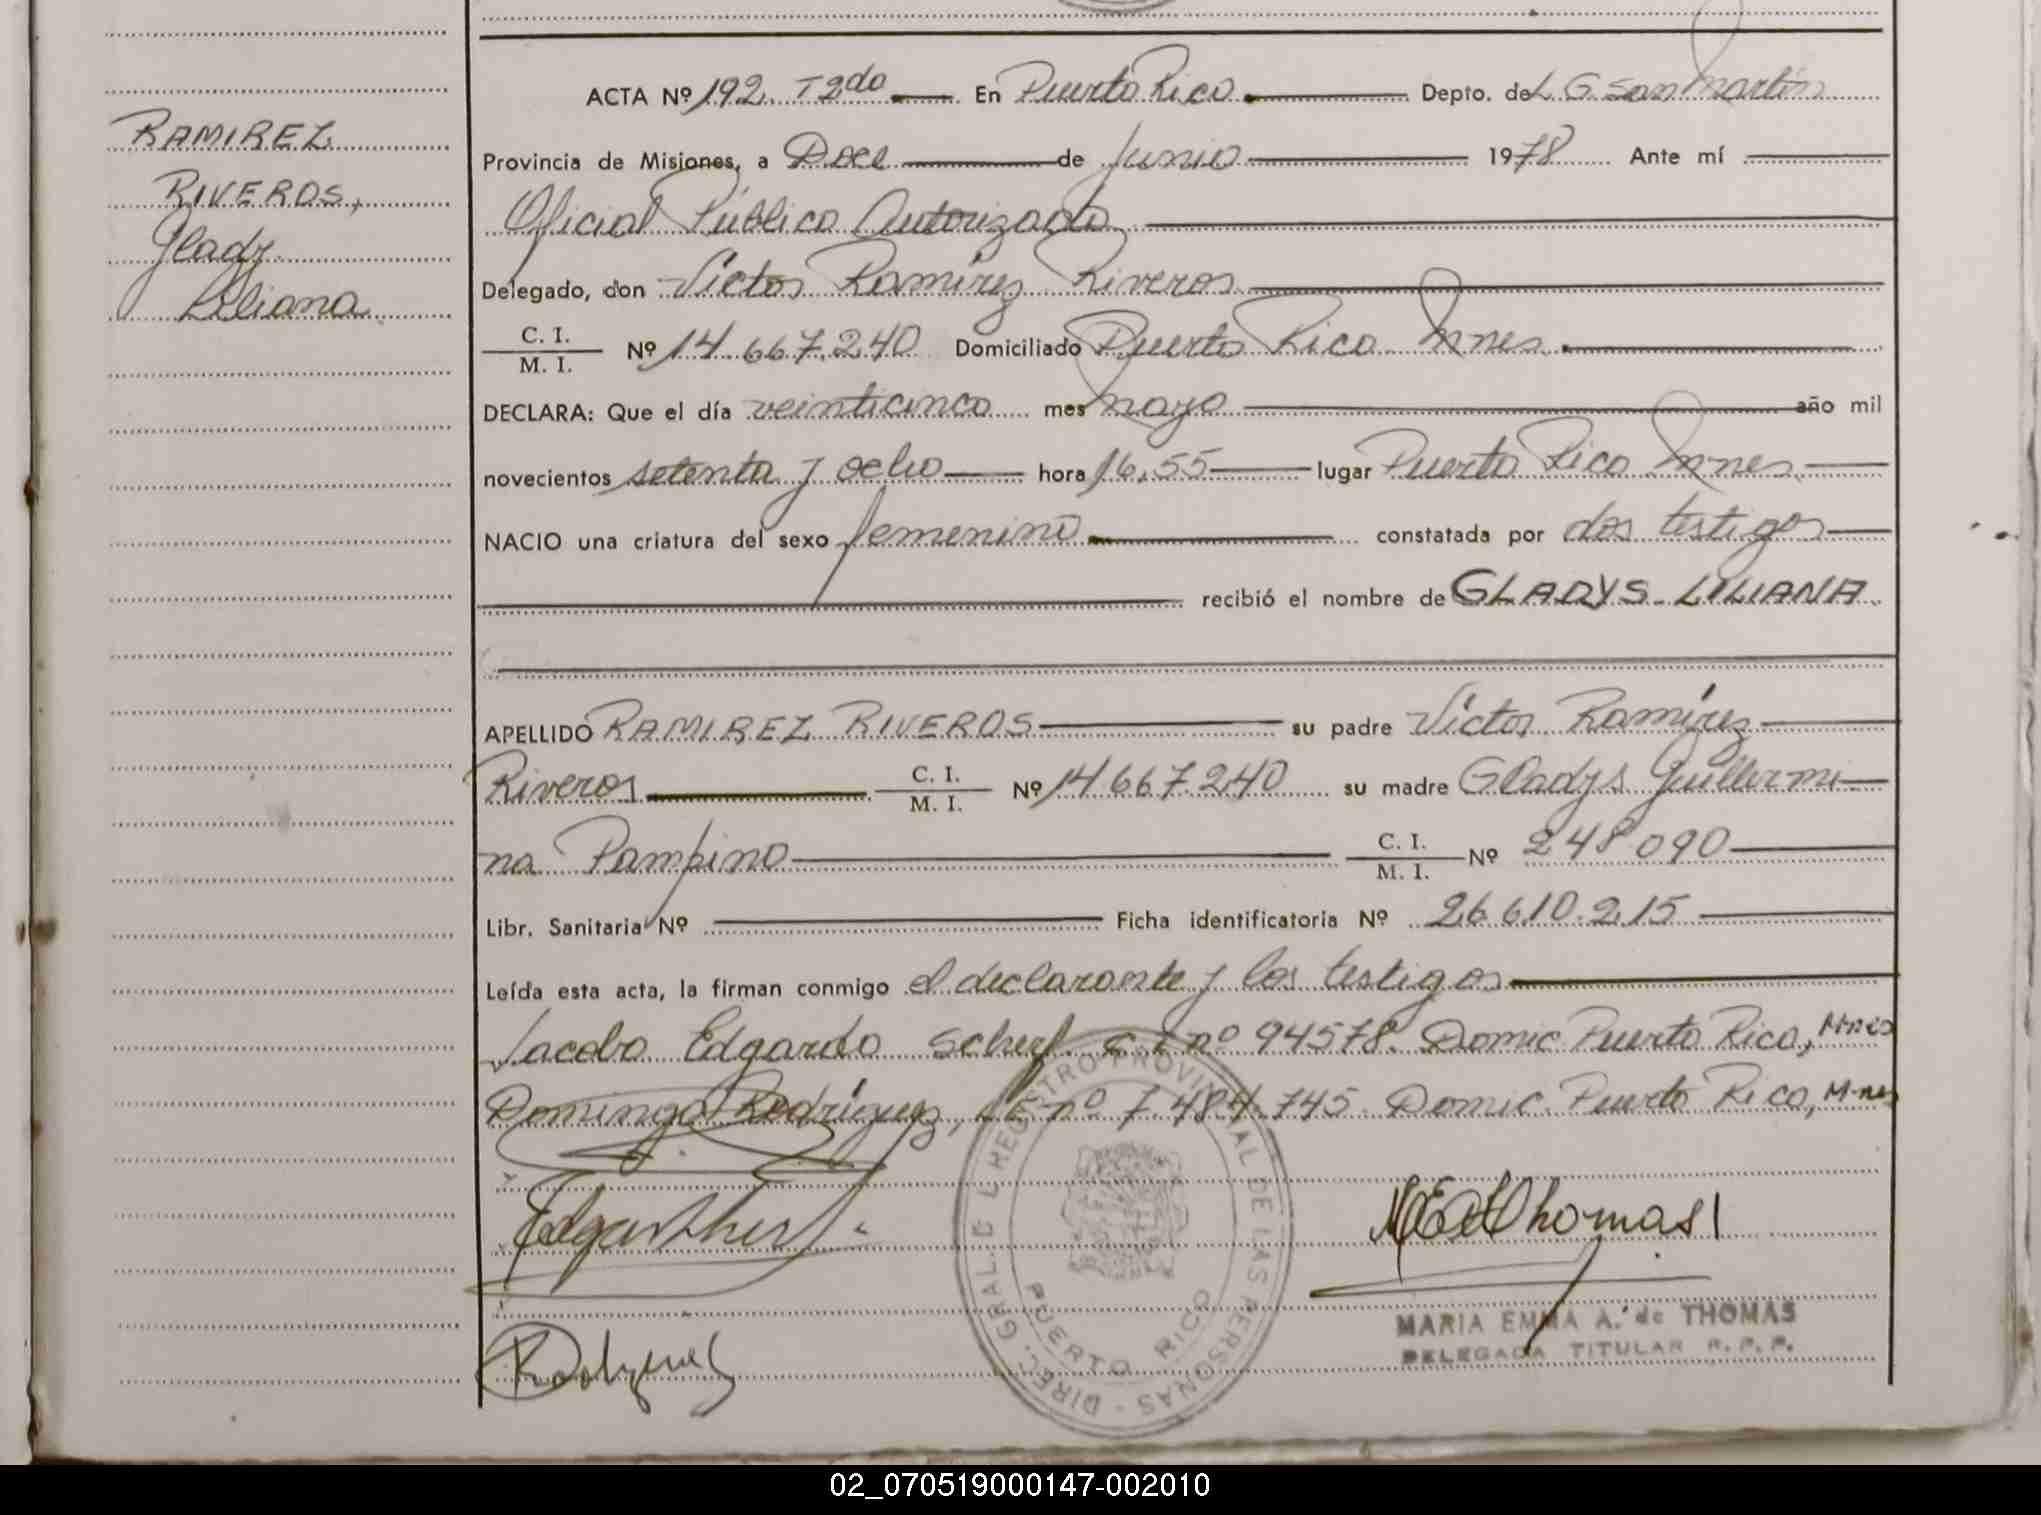 RAMIREZ
RIVEROS,
Glady
Liliana
ACTA Nº 192. T 2do En Puerto Rico Depto. de L G. San Martín
Provincia de Misiones, a Doce de Junio 1978 Ante mí
Oficial Público Autorizado
Delegado, don Víctor Ramírez Riveros
C. I.
M. I.
Nº 14.667.240 Domiciliado Puerto Rico Mnes.
DECLARA: Que el día veinticinco mes mayo año mil
novecientos setenta y ocho hora 16,55 lugar Puerto Rico Mnes.
NACIO una criatura del sexo femenino constatada por dos testigos
recibió el nombre de GLADYS LILIANA
APELLIDO RAMIREZ RIVEROS su padre Víctor Ramírez
Riveros C. I. M. I. Nº 14.667.240 su madre Gladys Guillermi-
na Pampino C. I. M. I. Nº 248090
Libr. Sanitaria Nº Ficha identificatoria Nº 26.610.215
Leída esta acta, la firman conmigo el declarante y los testigos
Jacobo Edgardo Scherf c i nº 94578. Domic Puerto Rico, Mnes
Domingo Rodríguez, LE nº 7.484.745. Domic. Puerto Rico, M-nes
DIREC. GRAL DEL REGISTRO PROVINCIAL DE LAS PERSONAS
PUERTO RICO
Thomas
MARIA EMMA A. de THOMAS
DELEGADA TITULAR R. P. P.
02_070519000147-002010